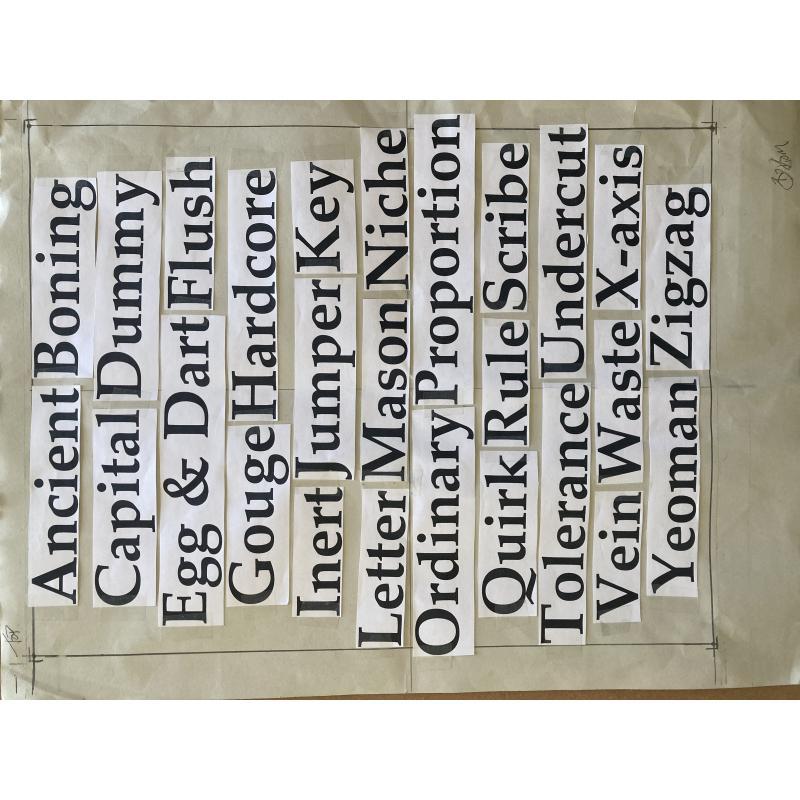 Ancient Boning
Capital Dummy
Egg & Dart Flush
Gouge Hardcore
Inert Jumper Key
Letter Mason Niche
Ordinary Proportion
Quirk Rule Scribe
Tolerance Undercut
Vein Waste X-axis
Yeoman Zigzag